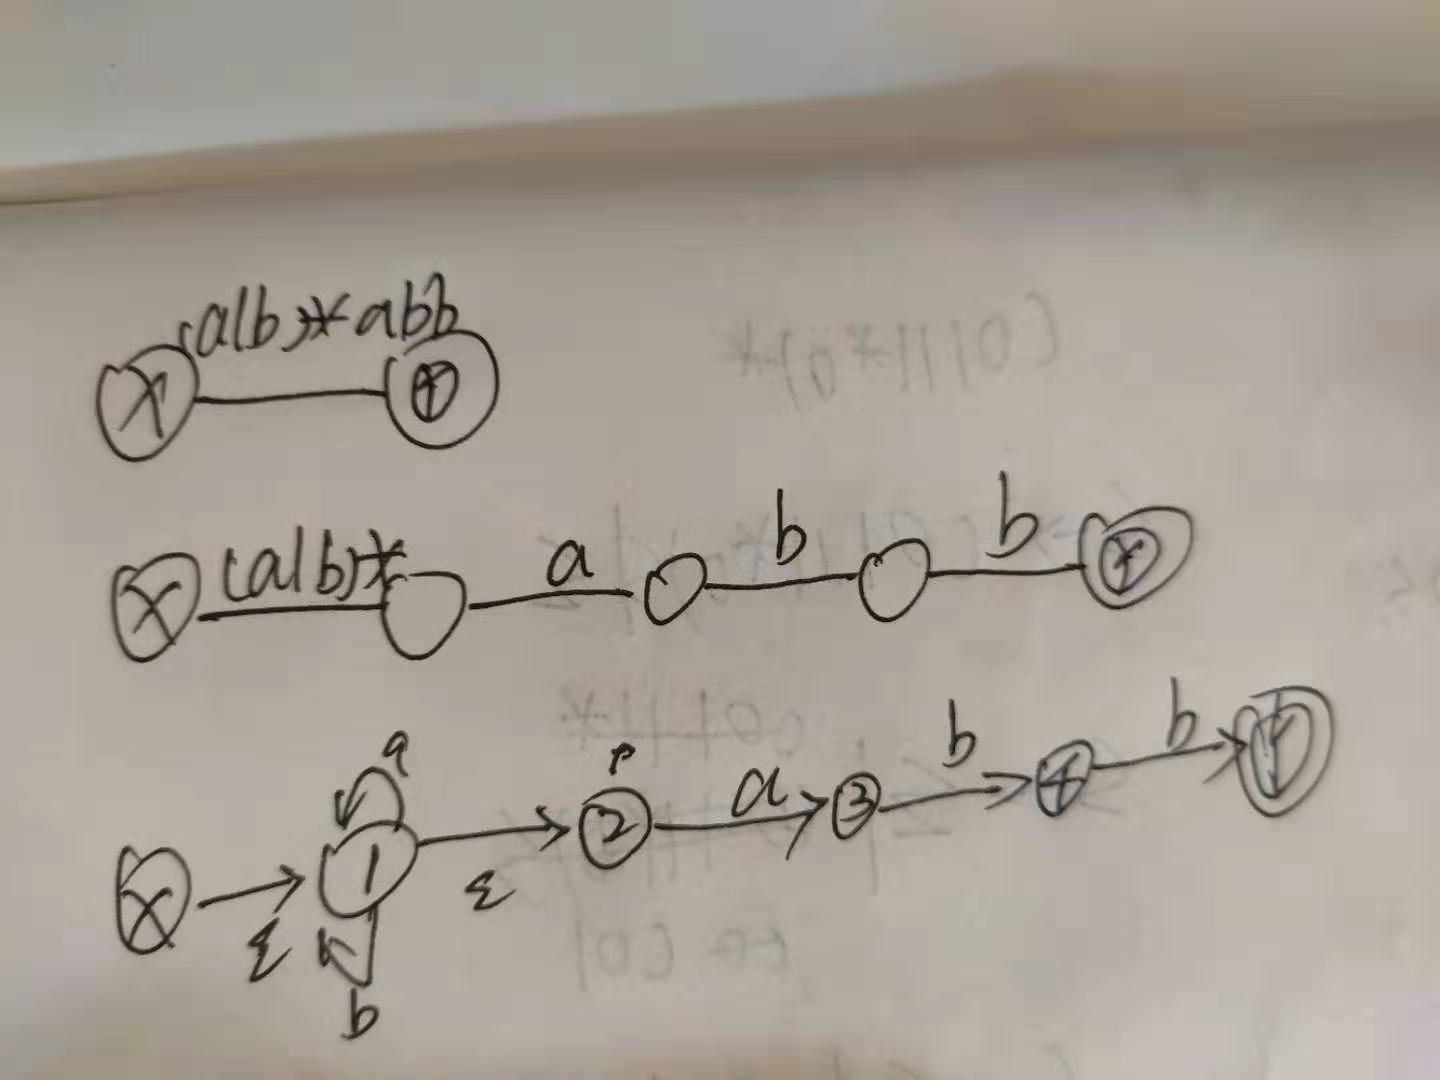 (a|b)*abb
X Y
(a|b)* a b b
X Y
a b b
X 1 2 a 3 4 Y
ε ε
b